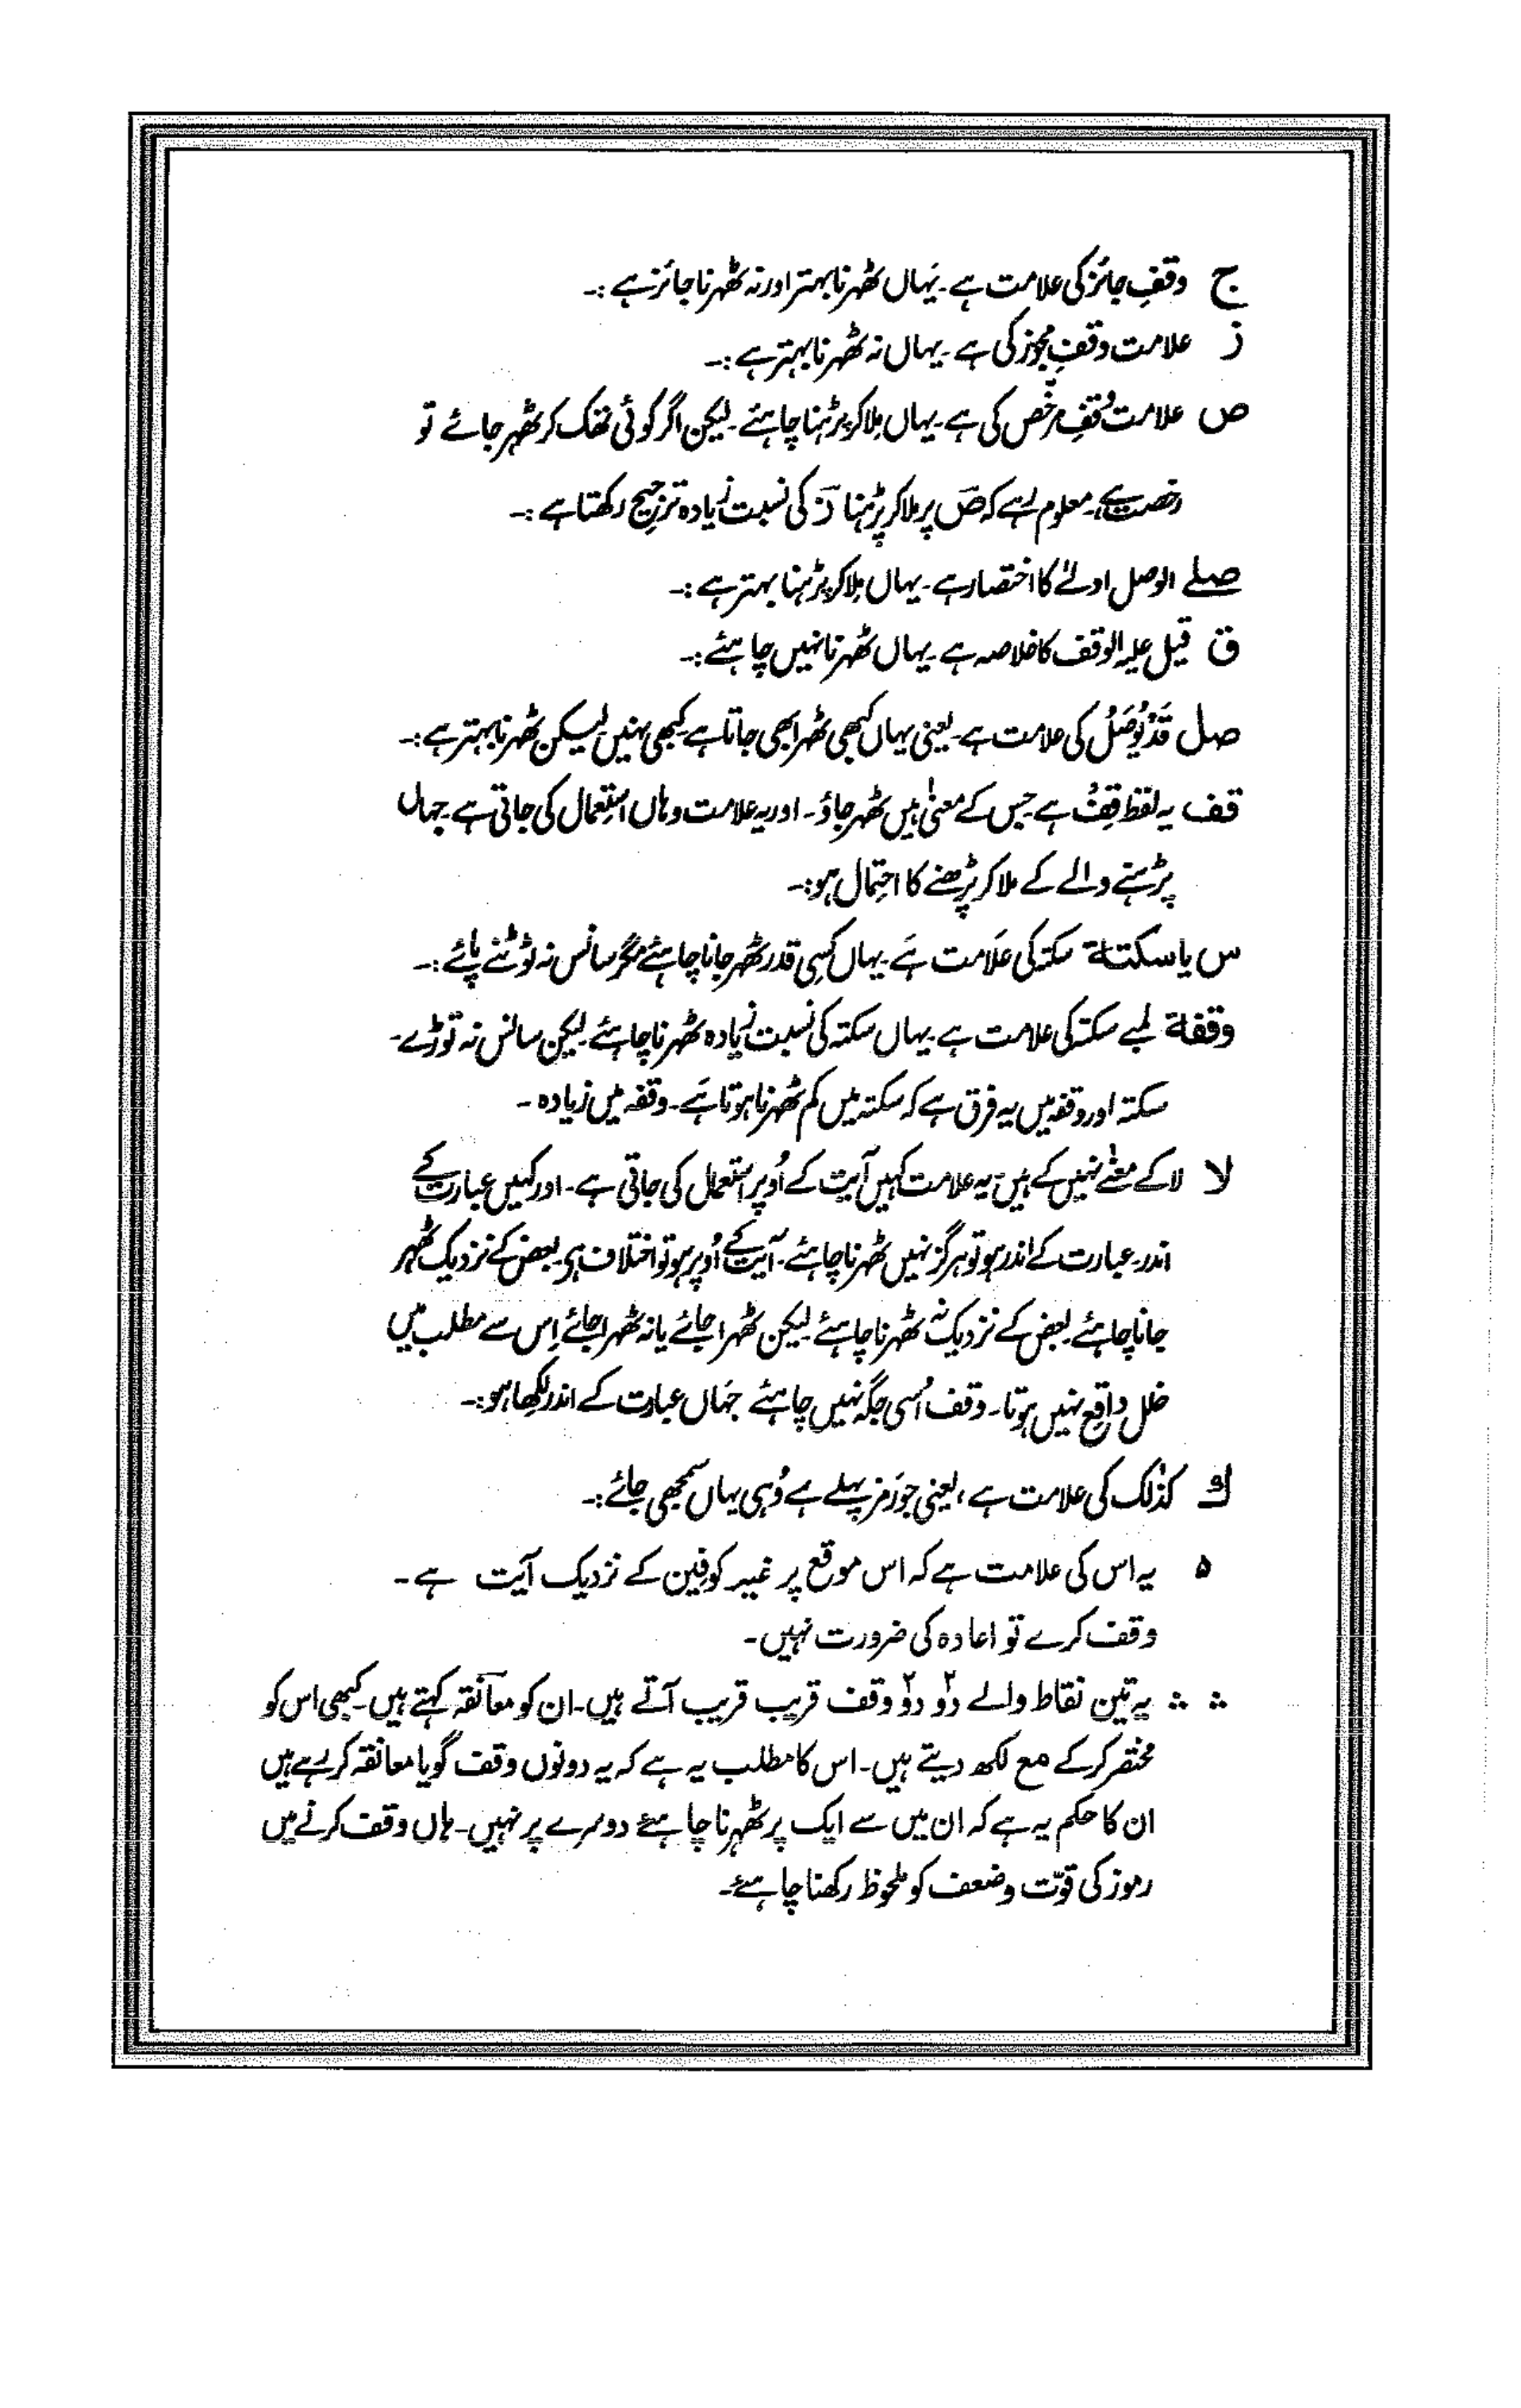 ج وقفِ جائز کی علامت ہے۔ یہاں ٹھہرنا بہتر اور نہ ٹھہرنا جائز ہے :۔
ز علامت وقفِ مجوّز کی ہے۔ یہاں نہ ٹھہرنا بہتر ہے :۔
ص علامت وقفِ مرخّص کی ہے۔ یہاں مِلا کر پڑہنا چاہئے۔ لیکن اگر کوئی تھک کر ٹھہر جائے تو
رخصت ہے۔ معلوم رہے کہ صؔ پر مِلا کر پڑہنا زؔ کی نسبت زیادہ ترجیح رکھتا ہے :۔
صلے الوصل اولےٰ کا اختصار ہے۔ یہاں مِلا کر پڑہنا بہتر ہے :۔
ق قیل علیہ الوقف کا خلاصہ ہے۔ یہاں ٹھہرنا نہیں چاہئے :۔
صل قَدْ یُوْصَلُ کی علامت ہے۔ یعنی یہاں کبھی ٹھہرا بھی جاتا ہے کبھی نہیں لیکن ٹھہرنا بہتر ہے :۔
قف یہ لفظ قِفْ ہے جس کے معنیٰ ہیں ٹھہر جاؤ۔ اور یہ علامت وہاں استعمال کی جاتی ہے جہاں
پڑہنے والے کے ملا کر پڑھنے کا احتمال ہو :۔
س یا سکتة سکتہ کی علامت ہے۔ یہاں کسی قدر ٹھہر جانا چاہئے مگر سانس نہ ٹوٹنے پائے :۔
وقفة لمبے سکتہ کی علامت ہے۔ یہاں سکتہ کی نسبت زیادہ ٹھہرنا چاہئے لیکن سانس نہ توڑے۔
سکتہ اور وقفہ میں یہ فرق ہے کہ سکتہ میں کم ٹھہرنا ہوتا ہے۔ وقفہ میں زیادہ ۔
لا لا کے معنے نہیں کے ہیں۔ یہ علامت کہیں آیت کے اُوپر استعمال کی جاتی ہے۔ اور کہیں عبارت کے
اندر۔ عبارت کے اندر ہو تو ہرگز نہیں ٹھہرنا چاہئے۔ آیت کے اُوپر ہو تو اختلاف ہی۔ بعض کے نزدیک ٹھہر
جانا چاہئے بعض کے نزدیک نہ ٹھہرنا چاہئے لیکن ٹھہرا جائے یا نہ ٹھہرا جائے اِس سے مطلب میں
خلل واقع نہیں ہوتا۔ وقف اُسی جگہ نہیں چاہئے جہاں عبارت کے اندر لکھا ہو :۔
ك کذٰلک کی علامت ہے، یعنی جو رَمز پہلے ہے وُہی یہاں سمجھی جائے :۔
ہ یہ اس کی علامت ہے کہ اس موقع پر غیر کوفیین کے نزدیک آیت ہے ۔
وقف کرے تو اعادہ کی ضرورت نہیں۔
∴ ∴ یہ تین نقاط والے دو۲ دو۲ وقف قریب قریب آتے ہیں۔ ان کو معانقہ کہتے ہیں۔ کبھی اس کو
مختصر کر کے مع لکھ دیتے ہیں۔ اس کا مطلب یہ ہے کہ یہ دونوں وقف گویا معانقہ کر رہے ہیں
ان کا حکم یہ ہے کہ ان میں سے ایک پر ٹھہرنا چاہئے دوسرے پر نہیں۔ ہاں وقف کرنے میں
رموز کی قوّت و ضعف کو ملحوظ رکھنا چاہئے۔